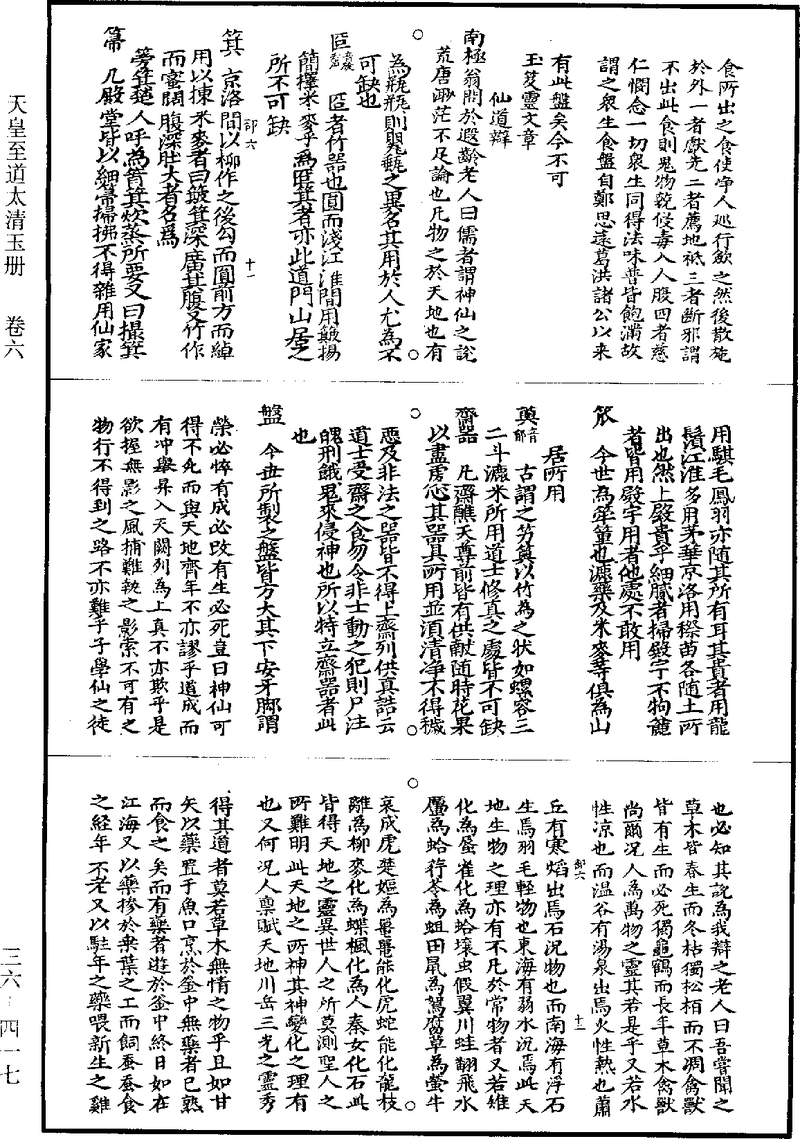 天皇至道太清玉册 卷六
三六-四一七
食所出之食使净人巡行飲之然後散施
於外一者獻先二者薦地祇三者斷邪謂
不出此食則鬼物乾侵毒入人股四者慈
仁憫念一切衆生同得法味普皆飽滿故
謂之衆生食盤自鄭思遠葛洪諸公以来
有此盤矣今不可
玉笈靈文章
仙道辯
南極翁問於遐齡老人曰儒者謂神仙之說
荒唐渺茫不足論也凡物之於天地也有
為瓶甁則甖甑之異名其用於人尤為不
可缺也
匠者竹器也圓而淺江淮間用皷揚
簡擇米麥乎為匠箕者亦此道門山居之
所不可缺
箕 京洛間以柳作之後勾而圓前方而綽
部六
十一
用以揀米麥者曰簸箕深廣其腹又竹作
而蜜闊腹深肚大者名為
筹箕楚人呼為筲箕炊蒸所要又曰撮箕
箒 凡殿堂皆以細箒掃拂不得雜用仙家
用騏毛鳳羽亦随其所有耳其貴者用龍
鬚江淮多用茅華京洛用穄苗各随土所
出也然上殿貴乎細膩者掃殿宇不拘麄
者皆用殿宇用者他處不敢用
今世為笮篁也漉藥及米麥等俱為山
居所用
古謂之笏箕以竹為之狀如螺容三
二斗漉米所用道士修真之處皆不可缺
齋器 凡齋醮天尊前皆有供獻随時花果
以盡虔心其器具所用並須清净不得穢
惡及非法之器皆不得上齋列供真誥云
道士受齋之食勿令非士動之犯則尸注
魄刑餓鬼來侵神也所以特立齋器者此
也
盤 今世所製之盤皆方大其下安牙脚謂
榮必悴有成必敗有生必死豈曰神仙可
得不死而與天地齊年不亦謬乎道成而
有冲舉昇入天闕列為上真不亦欺乎是
欲握無影之風捕難執之影索不可有之
物行不得到之路不亦難乎子學仙之徒
也必知其說為我辯之老人曰吾嘗聞之
草木皆春生而冬枯獨松栢而不凋禽獸
皆有生而必死獨龜鶴而長年草木禽獸
尚爾况人為萬物之靈其若是乎又若水
性凉也而温谷有湯泉出焉火性熱也蕭
部六
十二
丘有寒焰出焉石沉物也而南海有浮石
生焉羽毛輕物也東海有弱水沉焉此天
地生物之理亦有不凡於常物者又若雉
化為蜃雀化為蛤壤虫假翼川蛙翻飛水
蠣為蛤荇苓為蛆田鼠為鴽腐草為螢牛
哀成虎楚嫗為黿黿能化虎蛇能化龍枝
離為柳麥化為蝶楓化為人秦女化石此
皆得天地之靈異世人之所莫測聖人之
所難明此天地之所神其神變化之理有
也又何况人禀賦天地川岳三光之靈秀
得其道者莫若草木無情之物乎且如甘
矣以藥置于魚口烹於釜中無藥者已熟
而食之矣而有藥者遊於釜中終日如在
江海又以藥摻於桒葉之工而飼蚕蚕食
之経年不老又以駐年之藥喂新生之雞